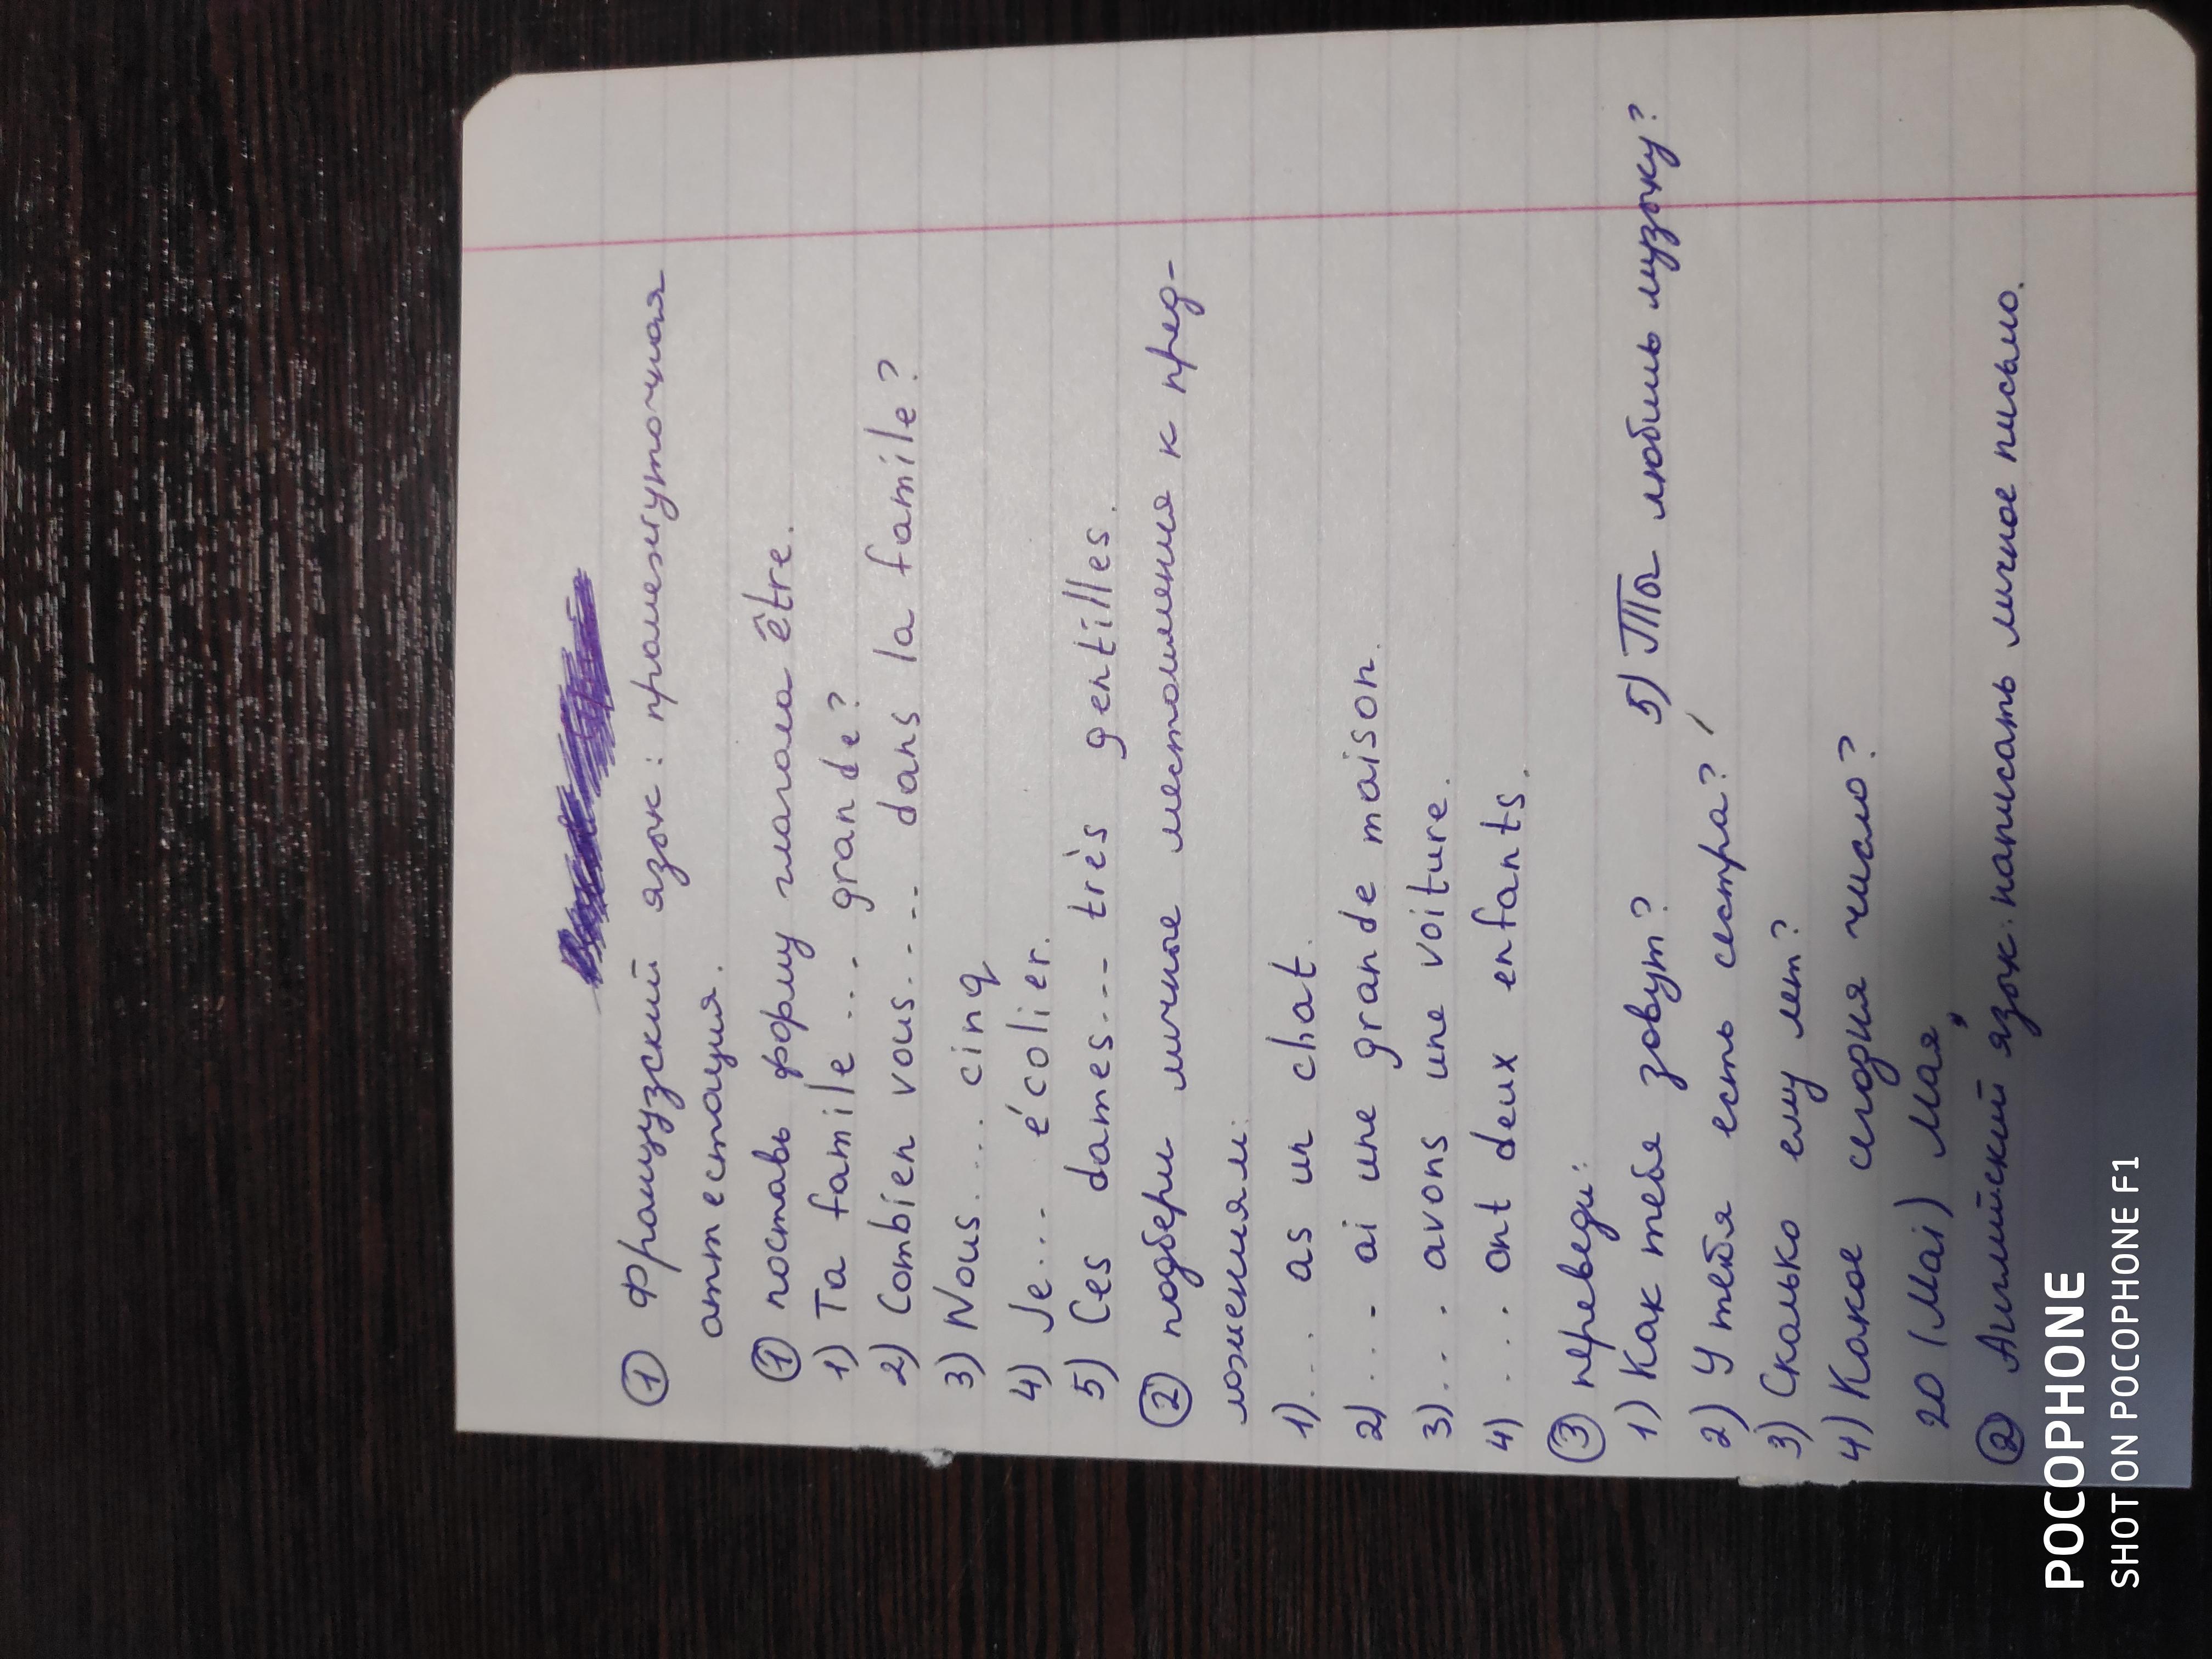 ① Французский язык: промежуточная
аттестация.
① поставь форму глагола être.
1) Ta famile .... grande?
2) Combien vous.... dans la famile?
3) Nous .... cinq
4) Je .... écolier.
5) Ces dames.... très gentilles.
② подбери личные местоимения к пред-
ложениям:
1) ... as un chat.
2) .... ai une grande maison.
3) .... avons une voiture.
4) .... ont deux enfants.
③ переведи:
1) Как тебя зовут? 5) Ты любишь музыку?
2) У тебя есть сестра?
3) Сколько ему лет?
4) Какое сегодня число?
20 (Mai) Мая
② Английский язык: написать личное письмо.
POCOPHONE
SHOT ON POCOPHONE F1